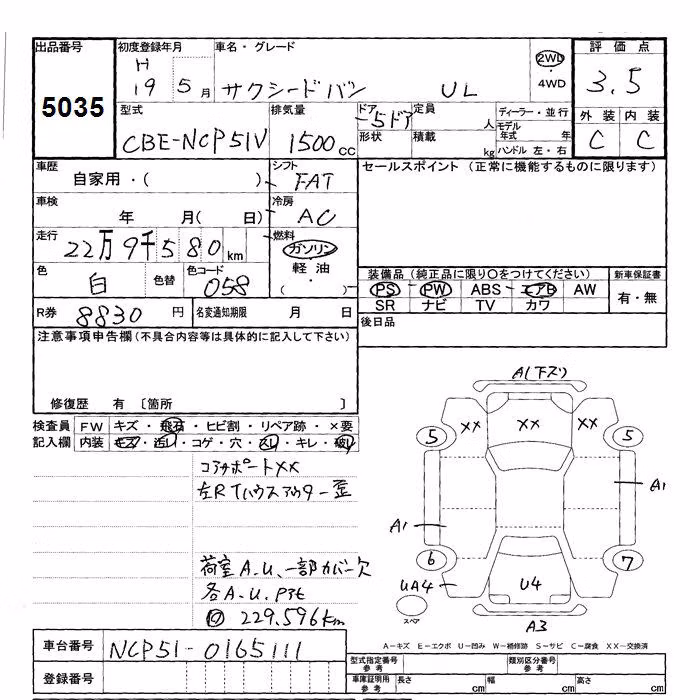 出品番号
5035
初度登録年月
H
19 5月
車名・グレード
サクシードバン UL
2WD
・
4WD
評価点
3.5
外装 内装
C C
型式
CBE-NCP51V
排気量
1500cc
ドア
5ドア
形状
定員
人
積載
kg
ディーラー・並行
モデル
年式 年
ハンドル 左・右
車歴
自家用・( )
シフト
FAT
セールスポイント (正常に機能するものに限ります)
車検
年 月( 日)
冷房
AC
走行
22万9千580km
燃料
ガソリン
軽油
( )
色
白
色替
色コード
058
装備品(純正品に限り○をつけてください)
PS・PW・ABS・エアB・AW
SR ナビ TV カワ
新車保証書
有・無
R券
8830円
名変通知期限 月 日
後日品
注意事項申告欄(不具合内容等は具体的に記入して下さい)
修復歴 有 〔箇所 〕
検査員
記入欄
FW キズ・飛石・ヒビ割・リペア跡・×要
内装 キズ・汚レ・コゲ・穴・スレ・キレ・破レ
コアサポートXX
左RTハウスアウター歪
荷室A.U、一部カバー欠
各A.U.P3モ
229.596km
A(下スリ)
XX XX XX
5 5
A1 A1
6 7
UA4 U4
スペア
A3
A-キズ E-エクボ U-凹み W-補修跡 S-サビ C-腐食 XX-交換済
車台番号 NCP51-0165111
登録番号
型式指定番号
参考
類別区分番号
参考
車庫証明用
参考
長さ cm 幅 cm 高さ cm